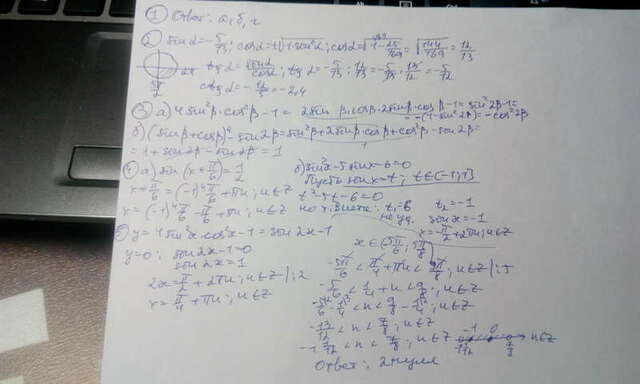 ① Ответ: а, б, г
② sin α = -5/13; cos α = +√(1-sin²α); cos α = √(1-25/169) = √(144/169) = 12/13
tg α = sin α/cos α; tg α = -5/13 : 12/13 = -5/13 · 13/12 = -5/12
ctg α = -12/5 = -2,4
③ а) 4 sin²β·cos²β-1 = 2sin β·cosβ·2sinβ·cos β-1 = sin²2β-1=
= -(1-sin²2β) = -cos²2β
б) (sinβ+cosβ)²-sin2β = sin²β+2sinβ·cosβ+cos²β-sin2β=
= 1+sin2β-sin2β = 1
④ а) sin (x+π/6) = 1/2
x+π/6 = (-1)ⁿ π/6 + πn; n∈Z
x = (-1)ⁿ π/6 - π/6 + πn; n∈Z
б) sin²x-5sinx-6=0
Пусть sinx=t; t∈[-1;1]
t²-5t-6=0
по т. Виета: t₁=6 t₂=-1
не уд. sinx=-1
x=-π/2+2πn; n∈Z
y=4sin²x·cos²x-1=sin2x-1
y=0: sin2x-1=0
sin2x=1
2x=π/2+2πn; n∈Z |:2
x=π/4+πn; n∈Z
-5π/6 < π/4+πn < 9π/8; n∈Z |:π
-5/6 < 1/4+n < 9/8; n∈Z
-13/12 < n < 7/8; n∈Z
-1 1/12 < n < 7/8; n∈Z
Ответ: 2 нуля